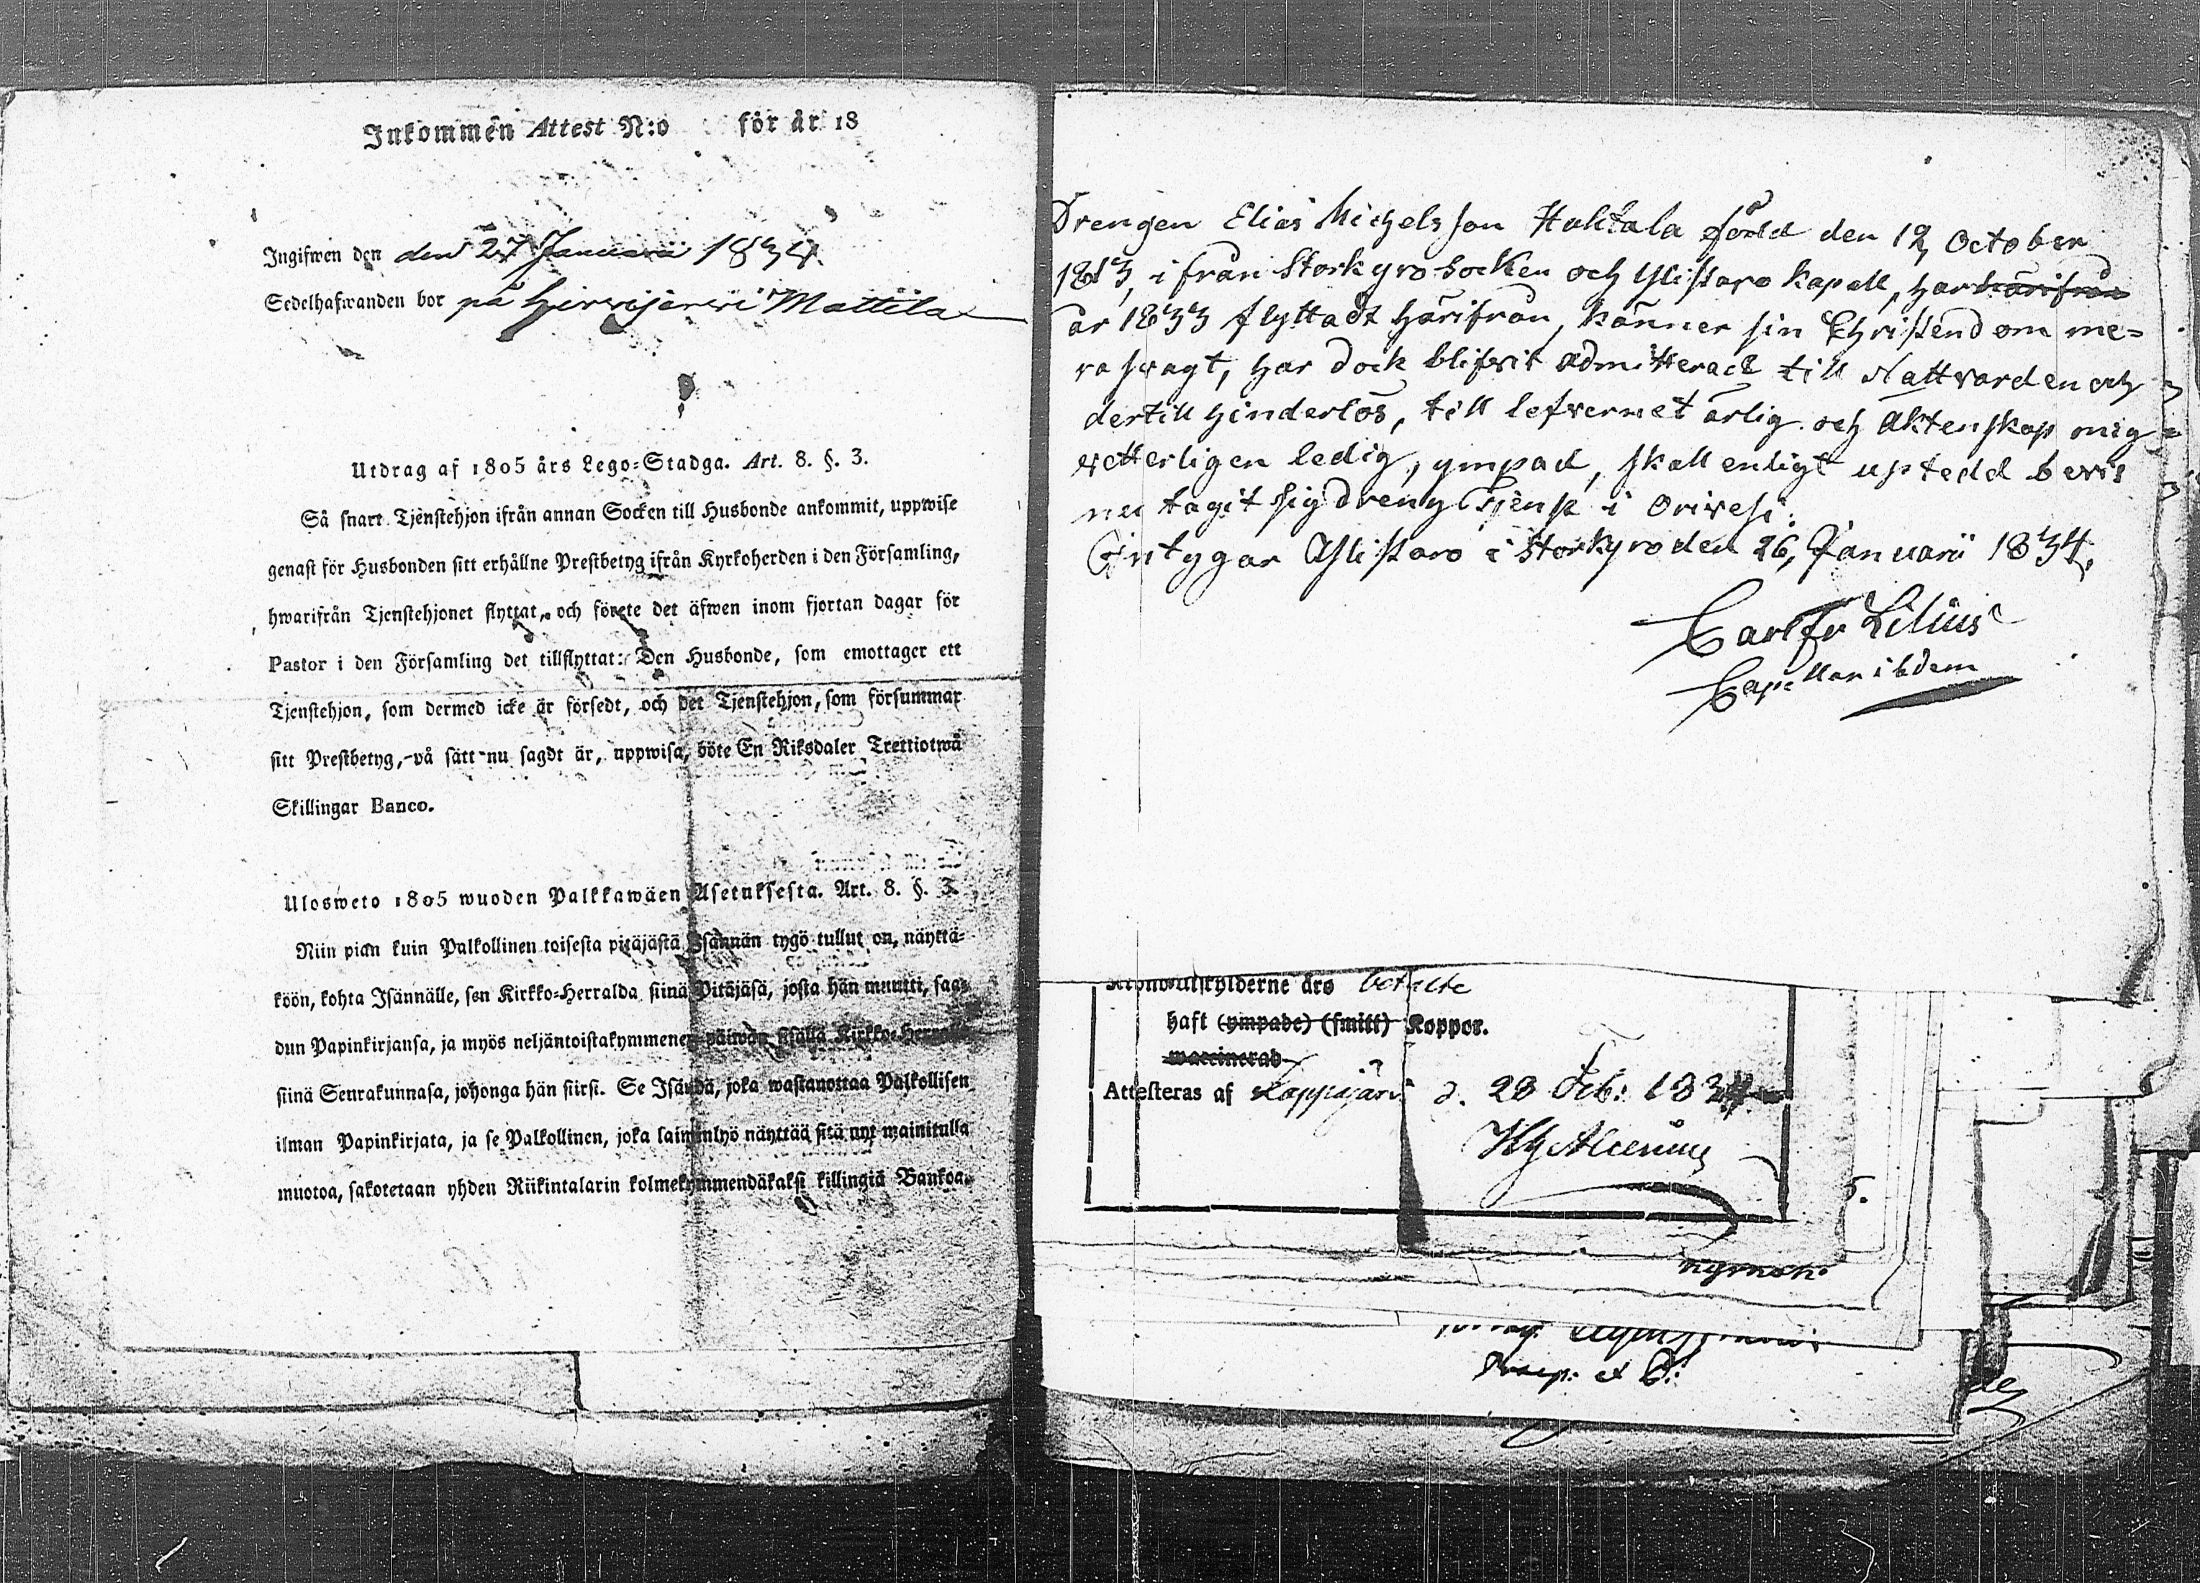 Inkommen Attest N:o för år 18
Ingifwen den den 27 Januarii 1834.
Sedelhafwanden bor på Hirvijärvi Mattila
Utdrag af 1805 års Lego-Stadga. Art. 8. §. 3.
Så snart Tjenstehjon ifrån annan Socken till Husbonde ankommit, uppwise
genast för Husbonden sitt erhållne Prestbetyg ifrån Kyrkoherden i den Församling,
hwarifrån Tjenstehjonet flyttat, och förete det äfwen inom fjortan dagar för
Pastor i den Församling det tillflyttat: Den Husbonde, som emottager ett
Tjenstehjon, som dermed icke är försedt, och det Tjenstehjon, som försummar
sitt Prestbetyg, på sätt nu sagdt är, uppwisa, böte En Riksdaler Trettiotwå
Skillingar Banco.
Ulosweto 1805 wuoden Palkkawäen Asetuksesta. Art. 8. §. 3.
Niin pian kuin Palkollinen toisesta pitäjästä Isännän tygö tullut on, näyttä-
köön, kohta Isännälle, sen Kirkko-Herralda siinä Pitäjäsä, josta hän muutti, saa-
dun Papinkirjansa, ja myös neljäntoistakymmenen päiwän sisällä Kirkko-Herralle
siinä Seurakunnasa, johonga hän siirsi. Se Isändä, joka wastanottaa Palkollisen
ilman Papinkirjata, ja se Palkollinen, joka laiminlyö näyttää sitä nyt mainitulla
muotoa, sakotetaan yhden Riikintalarin kolmekymmendäkaksi killingiä Bankoa.
Drengen Elias Michelsson Huhtala född den 12 October
1813, ifrån Storkyro Socken och Ylistaro Kapell, har härifrån
år 1833 flyttadt härifrån, känner sin Christendom me-
ra svagt, har dock blifvit admitterad till Nattvarden och
dertill hinderlös, till lefvernet ärlig och Äktenskap mig
vetterligen ledig, ympad, skall enligt uptedd bevis
nu tagit sig dreng tjenst i Orivesi.
Intygar Ylistaro i Storkyro den 26, Januarii 1834.
Carl Fr Lilius
Capellan ibdem
Kronoutskylderne äro betalte
haft (ympade) (smitt) Koppor.
waccinerad
Attesteras af Lappajärvi d. 28 Feb: 1834
5.
Præp: et P: